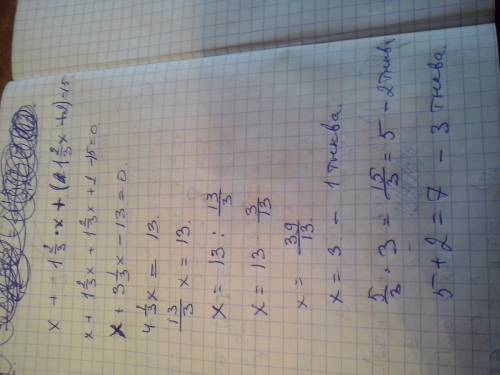 x + 1 2/3 · x + (1 2/3 x + 2) = 15.
x + 1 2/3 x + 1 2/3 x + 2 - 15 = 0.
x + 3 1/3 x - 13 = 0.
4 1/3 x = 13.
13/3 x = 13.
x = 13 : 13/3
x = 13 3/13
x = 39/13.
x = 3 - 1 тыква.
5/3 · 3 = 15/3 = 5 - 2 тыква
5 + 2 = 7 - 3 тыква.